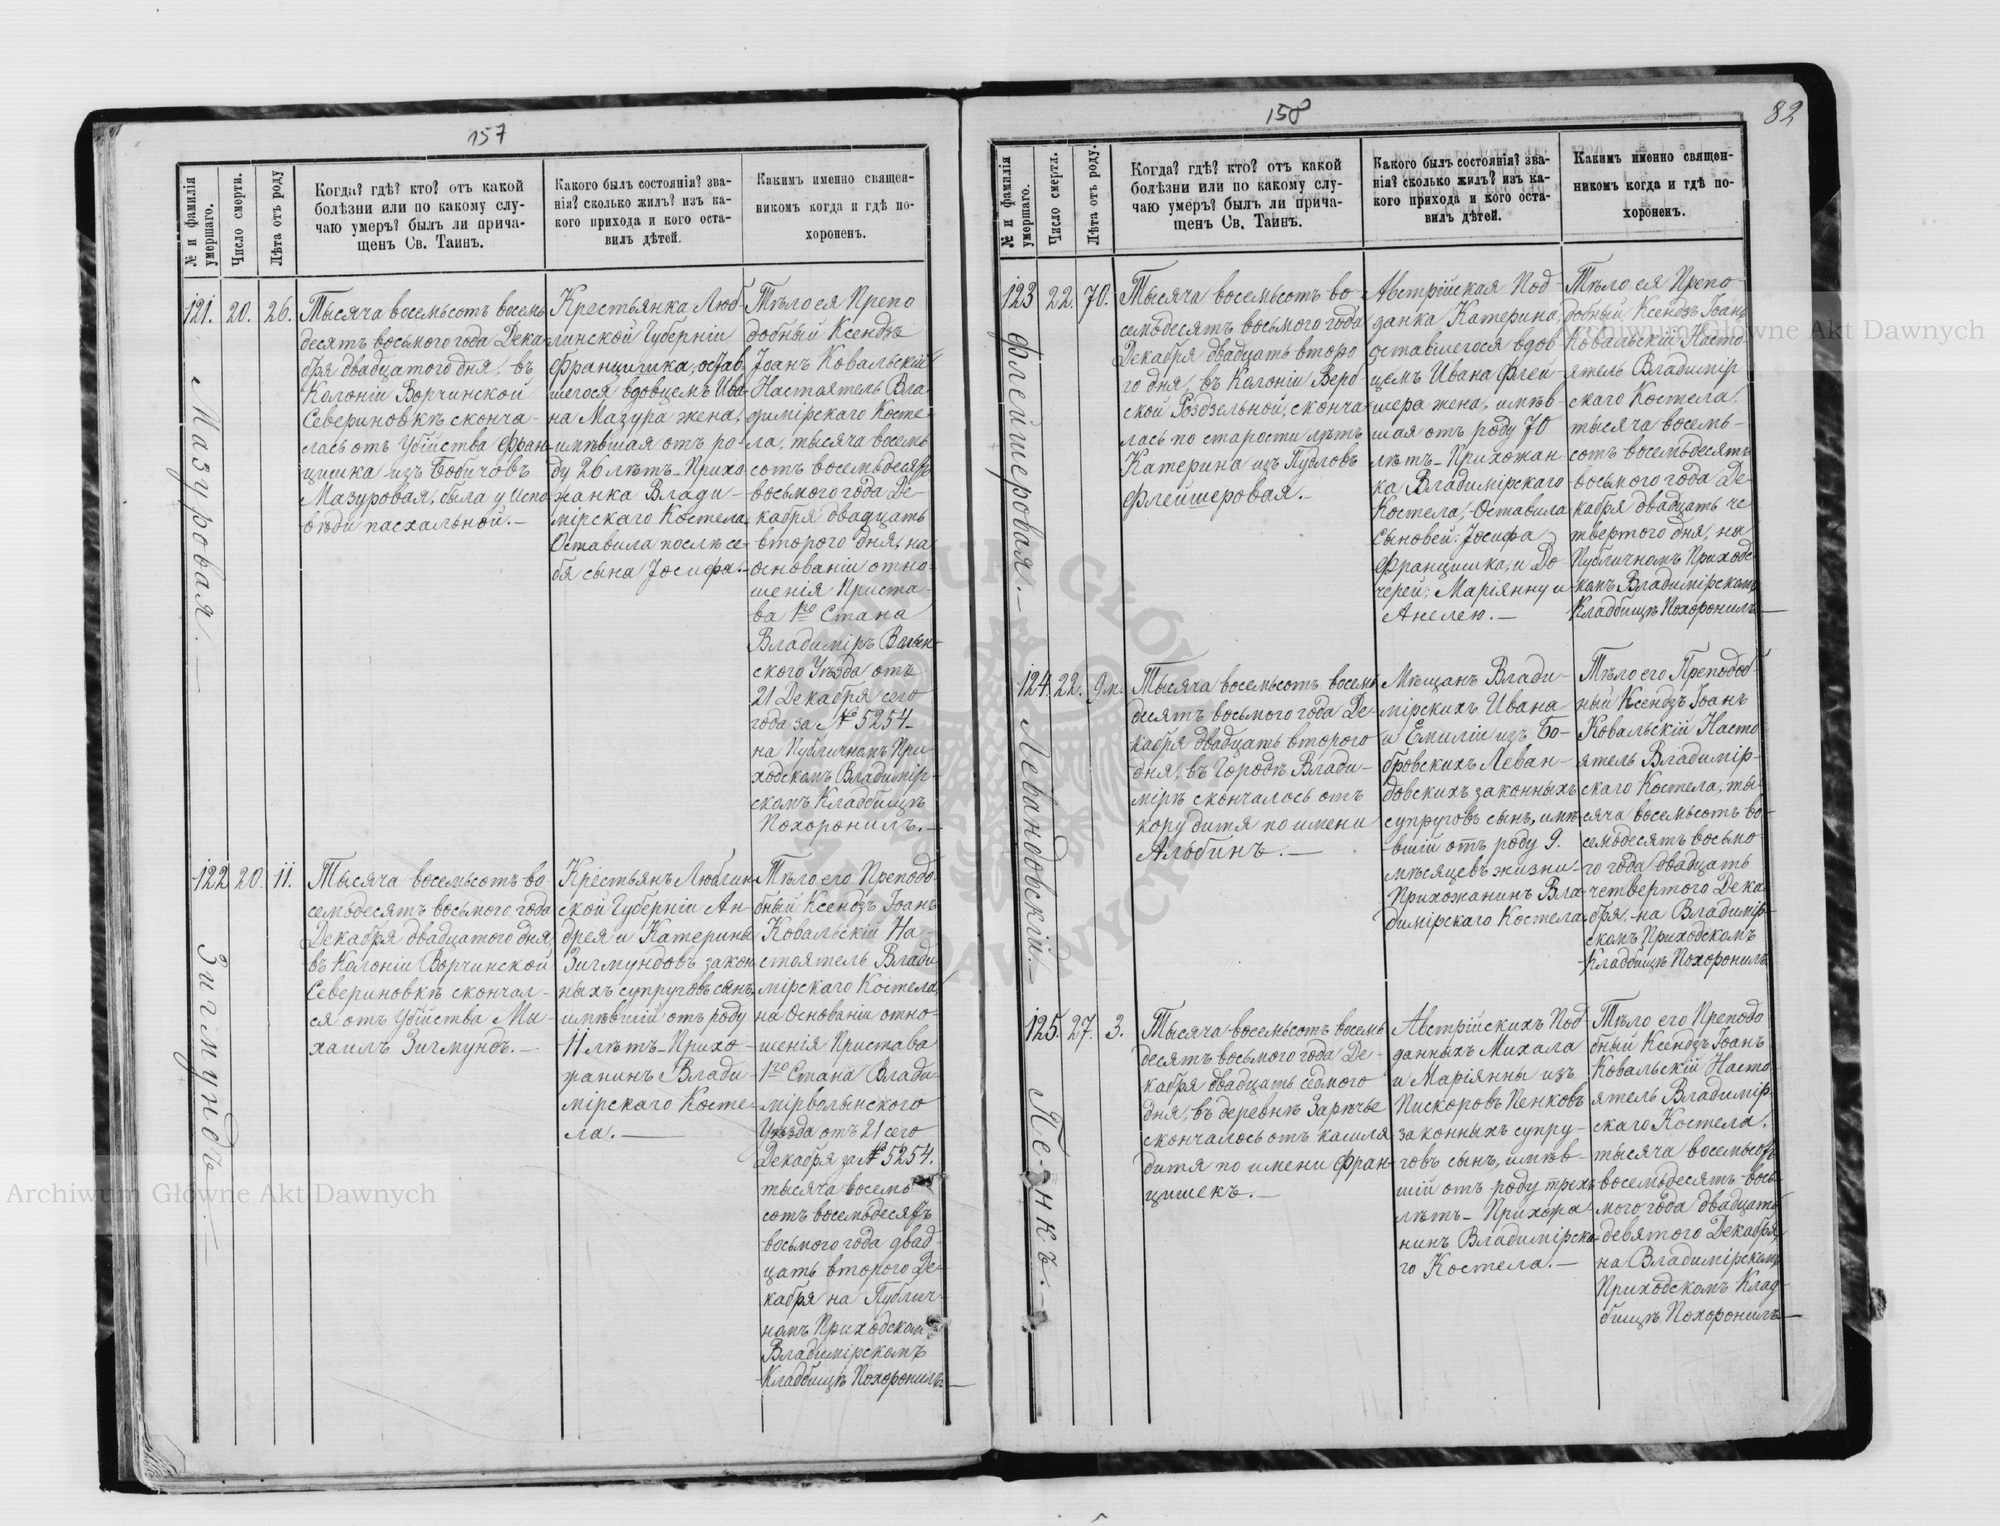 157
№ и фамилія умершаго.
Число смерти.
Лѣта отъ роду
Когда? гдѣ? кто? отъ какой
болѣзни или по какому слу-
чаю умеръ? былъ ли прича-
щенъ Св. Таинъ.
Какого былъ состоянія? зва-
нія? сколько жилъ? изъ ка-
кого прихода и кого оста-
вилъ дѣтей.
Какимъ именно священ-
никомъ когда и гдѣ по-
хороненъ.
121. 20. 26.
Мазуровая.
Тысяча восемьсотъ восемь
десятъ восьмого года Дека-
бря двадцатого дня, въ
Колоніи Ворчинской
Севериновкѣ сконча-
лась отъ Убійства Фран-
цишка изъ Бобичовъ
Мазуровая, была у испо
вѣди пасхальной.—
Крестьянка Люб-
линской Губерніи
Францишка, остав-
шегося вдовцемъ Ива-
на Мазура жена,
имѣвшая отъ ро-
ду 26 лѣтъ – Прихо
жанка Влади-
мірскаго Костела.
Оставила послѣ се-
бя сына Іосифа.–
Тѣло ея Препо
добный Ксендзъ
Іоанъ Ковальскій
Настоятель Вла
димірскаго Косте-
ла, тысяча восемь
сотъ восемьдесятъ
восьмого года Де-
кабря двадцать
второго дня, на
основаніи отно-
шенія Приста-
ва 1го Стана
Владиміръ Волын-
ского Уѣзда отъ
21 Декабря сего
года за № 5254–
на Публичномъ При
ходскомъ Владимір-
скомъ Кладбищѣ
Похоронилъ.–
122 20. 11.
Зигмундъ.—
Тысяча восемьсотъ во-
семьдесятъ восьмого года
Декабря двадцатого дня,
въ Колоніи Ворчинской
Севериновкѣ скончал-
ся отъ Убійства Ми-
хаилъ Зигмундъ.—
Крестьянъ Люблин
ской Губерніи Ан-
дрея и Катерины
Зигмундовъ закон
ныхъ супруговъ сынъ,
имѣвшій отъ роду
11 лѣтъ – Прихо-
жанинъ Влади-
мірскаго Косте-
ла.—
Тѣло его Преподо-
бный Ксендзъ Іоанъ
Ковальскій На-
стоятель Влади-
мірскаго Костела,
на Основаніи отно-
шенія Пристава
1го Стана Влади-
мірволынского
Уѣзда отъ 21 сего
Декабря за № 5254.
тысяча восемь
сотъ восемьдесятъ
восьмого года двад-
цать второго Де-
кабря на Публич-
номъ Приходском
Владимірскомъ
Кладбищѣ Похоронилъ—
158
82
№ и фамилія умершаго.
Число смерті.
Лѣта отъ роду.
Когда? гдѣ? кто? отъ какой
болѣзни или по какому слу-
чаю умеръ? былъ ли прича-
щенъ Св. Таинъ.
Какого былъ состоянія? зва-
нія? сколько жилъ? изъ ка-
кого прихода и кого оста-
вилъ дѣтей.
Какимъ именно священ-
никомъ когда и гдѣ по-
хороненъ.
123 22. 70.
Флейшеровая.—
Тысяча восемьсотъ во-
семьдесятъ восьмого года
Декабря двадцать второ
го дня, въ Колоніи Верб
ской Роздзельной, сконча-
лась по старости лѣтъ
Катерина изъ Пудловъ
Флейшеровая.–
Австрійская Под
данка Катерина,
оставшегося вдов
цемъ Ивана Флей-
шера жена, имѣв-
шая отъ роду 70
лѣтъ – Прихожан-
ка Владимірскаго
Костела, Оставила
Сыновей: Іосифа
Францишка, и До-
черей: Маріянну и
Анелею.—
Тѣло ея Препо-
добный Ксендзъ Іоанъ
Ковальскій Насто-
ятель Владимір
скаго Костела,
тысяча восемь-
сотъ восемьдесятъ
восьмого года Де-
кабря двадцать че
твертого дня, на
Публичномъ Приход-
комъ Владимірскомъ
Кладбищѣ Похоронилъ—
124. 22. 9 м.
Левандовскій.—
Тысяча восемьсотъ восемь
десятъ восьмого года Де-
кабря двадцать второго
дня, въ Городѣ Влади-
мірѣ скончалось отъ
кору дитя по имени
Альбинъ.—
Мѣщанъ Влади-
мірскихъ Ивана
и Емиліи изъ Бо-
бровскихъ Леван-
довскихъ законныхъ
супруговъ сынъ, имѣ
вшій отъ роду 9.
мѣсяцевъ жизни–
Прихожанинъ Вла-
димірскаго Костела.
Тѣло его Преподоб
ный Ксендзъ Іоанъ
Ковальскій Насто
ятель Владимір-
скаго Костела, ты-
сяча восемьсотъ во-
семьдесятъ восьмо-
го года двадцать
четвертого Дека
бря – на Владимір-
скомъ Приходскомъ
Кладбищѣ Похоронилъ
125. 27. 3.
Пенкъ.—
Тысяча восемьсотъ восемь
десятъ восьмого года Де-
кабря двадцать седмого
дня, въ деревнѣ Зарѣчье
скончалось отъ кашля
дитя по имени Фран-
цишекъ.—
Австрійскихъ Под
данныхъ Михала
и Маріянны изъ
Пискоровъ Пенковъ
законныхъ супру-
говъ сынъ, имѣв-
шій отъ роду трехъ
лѣтъ – Прихожа
нинъ Владимірска-
го Костела.—
Тѣло его Преподо
бный Ксендзъ Іоанъ
Ковальскій Насто-
ятель Владимір
скаго Костела,
тысяча восемьсотъ
восемьдесятъ вось-
мого года двадцать
девятого Декабря
на Владимірскомъ
Приходскомъ Клад-
бищѣ Похоронилъ—
Archiwum Główne Akt Dawnych
Archiwum Główne Akt Dawnych